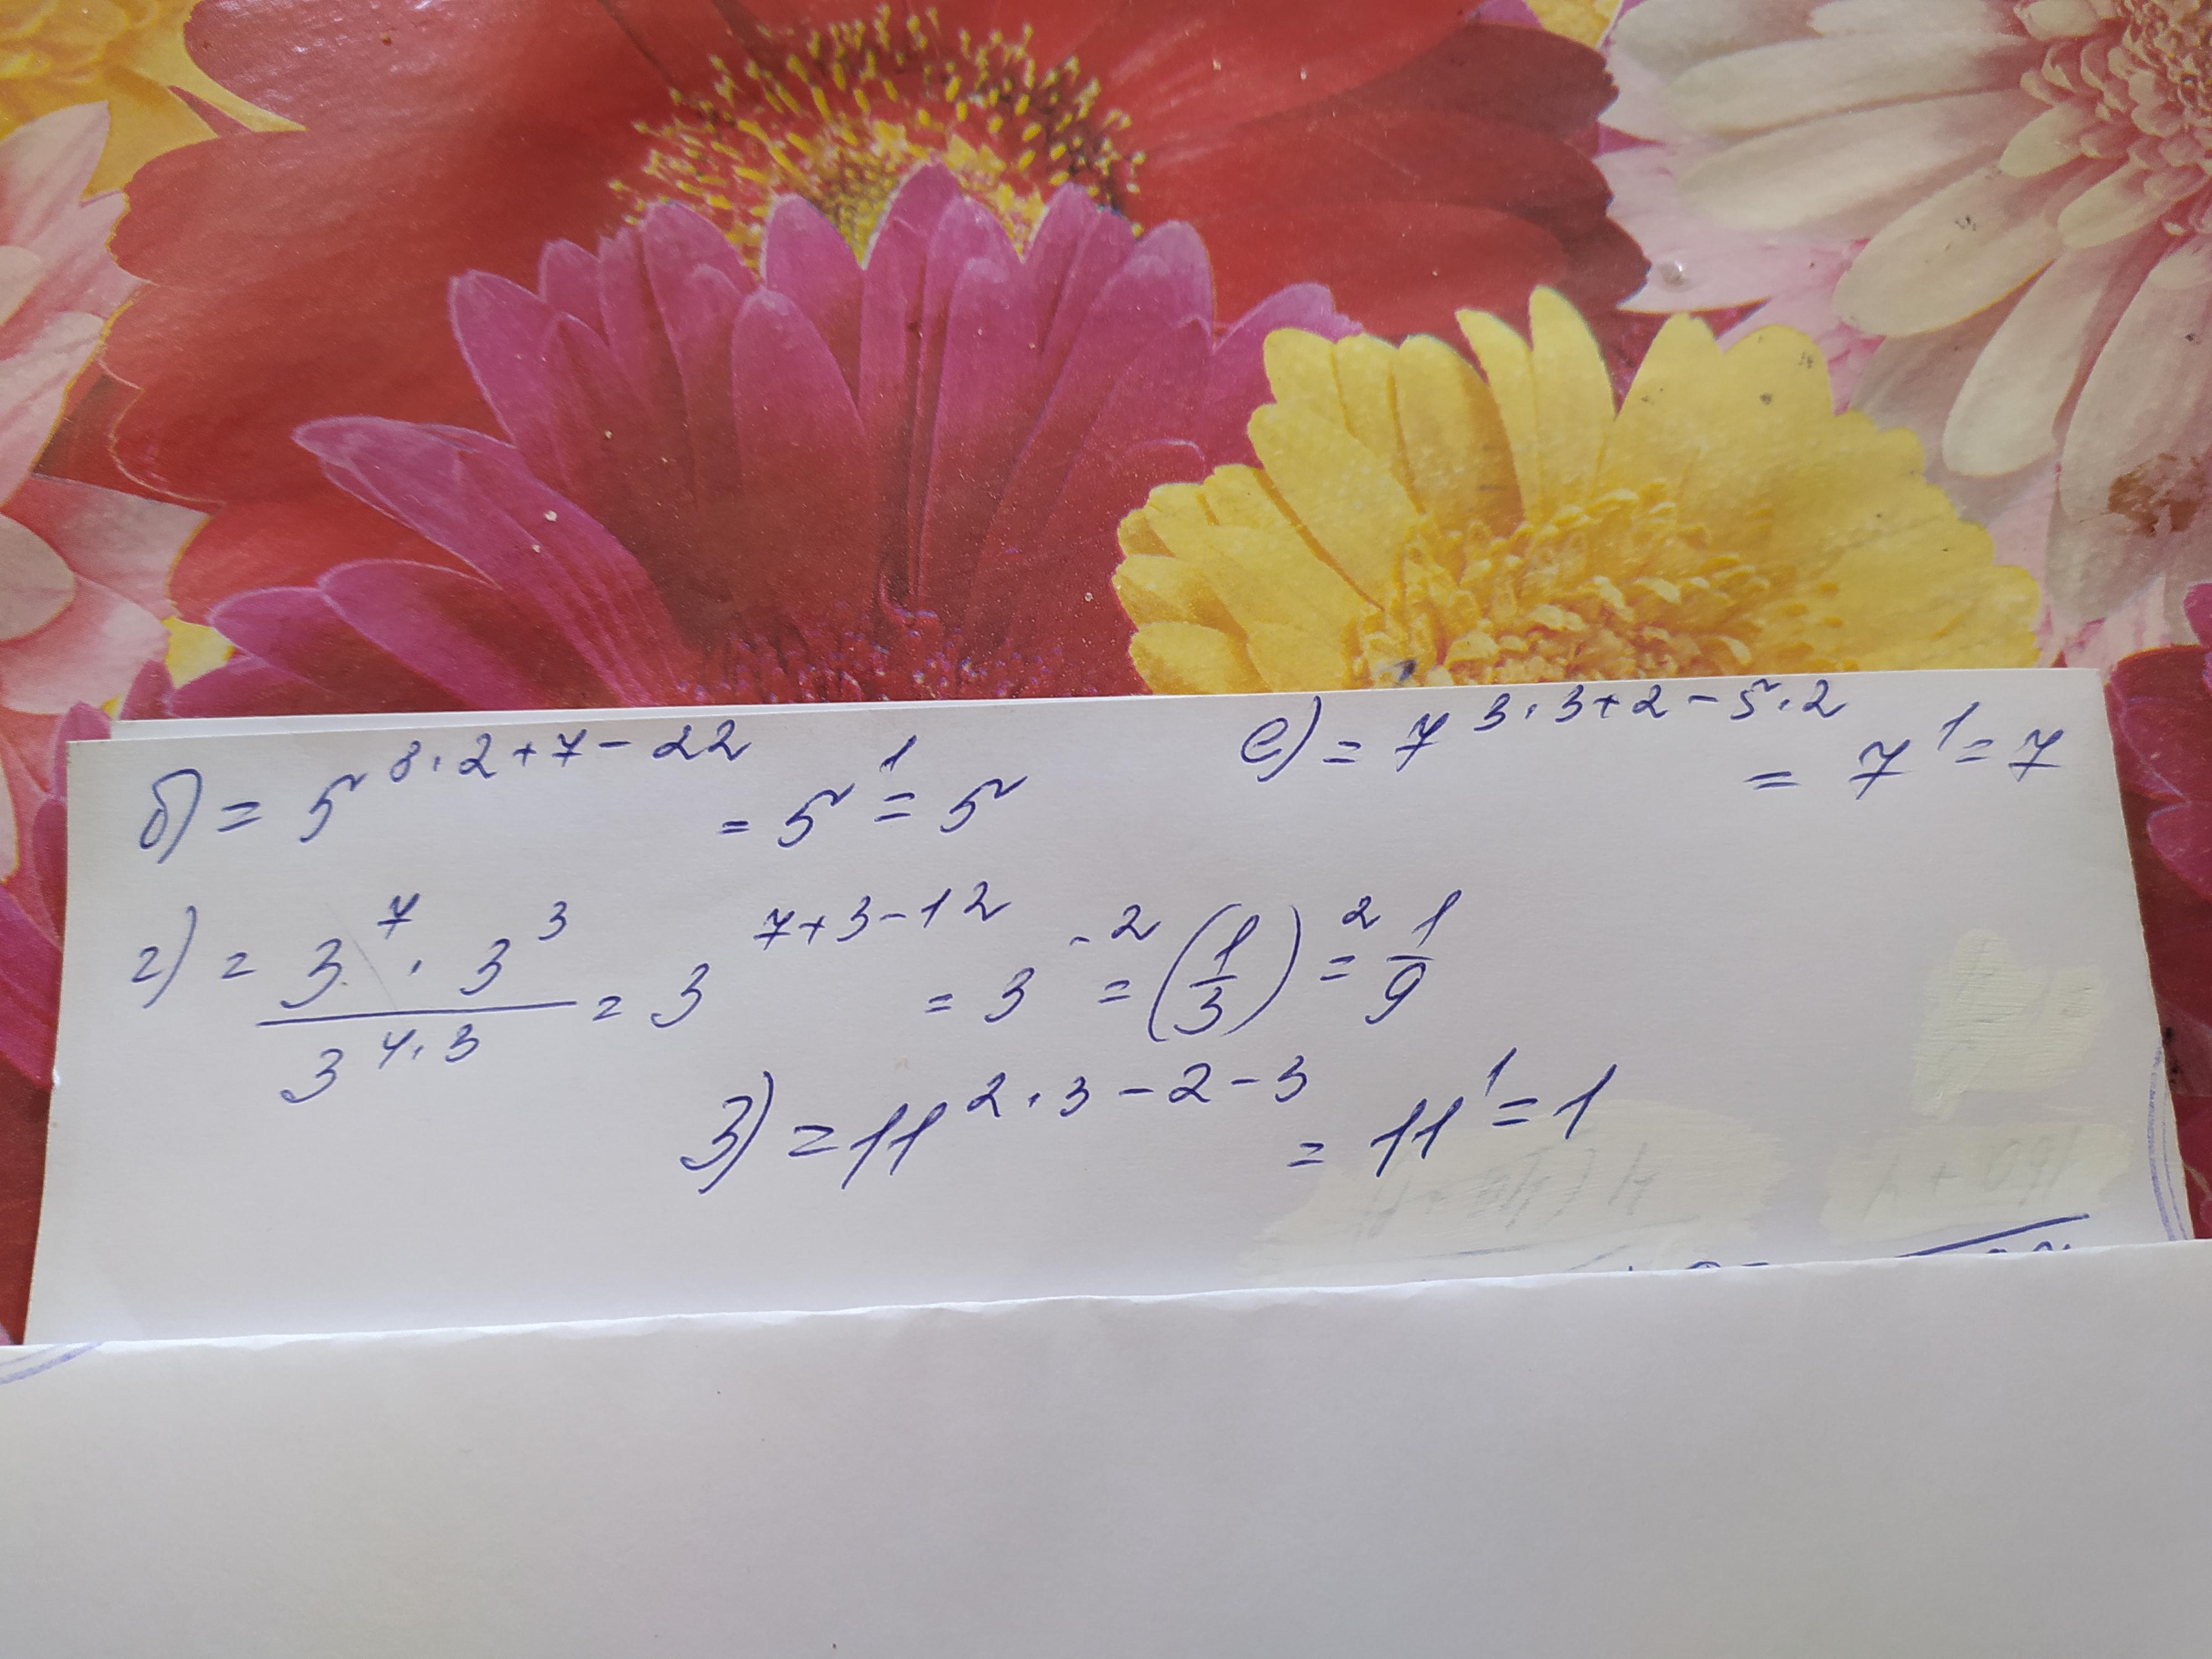 б) = 5^{8·2+7-22} = 5^1 = 5
е) = 7^{3·3+2-5·2} = 7^1 = 7
г) = \frac{3^7 · 3^3}{3^{4·3}} = 3^{7+3-12} = 3^{-2} = (\frac{1}{3})^2 = \frac{1}{9}
з) = 11^{2·3-2-3} = 11^1 = 1